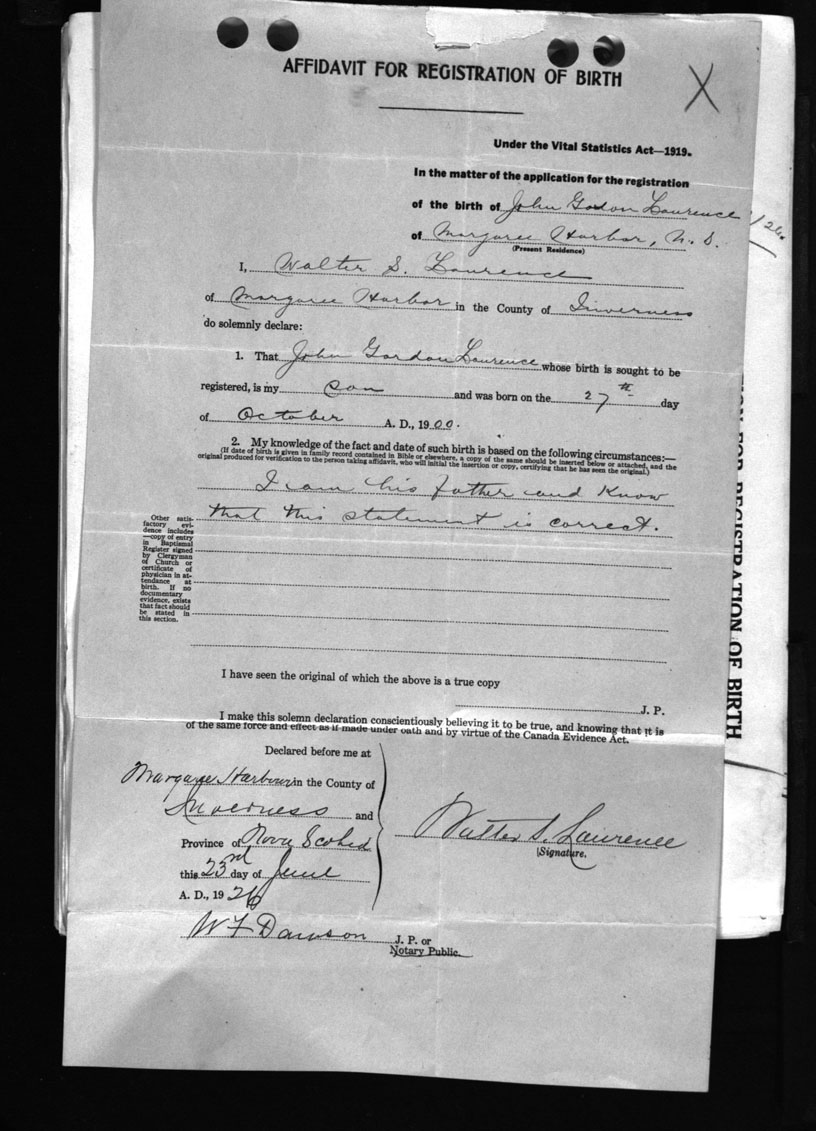 X
AFFIDAVIT FOR REGISTRATION OF BIRTH
Under the Vital Statistics Act—1919.
In the matter of the application for the registration
of the birth of John Godon Laurence
of Margaree Harbor, N. S.
(Present Residence)
/26.
I, Walter S. Laurence
of Margaree Harbor in the County of Inverness
do solemnly declare:
1. That John Gordon Laurence whose birth is sought to be
registered, is my son and was born on the 27th day
of October A. D., 1900.
2. My knowledge of the fact and date of such birth is based on the following circumstances:—
(If date of birth is given in family record contained in Bible or elsewhere, a copy of the same should be inserted below or attached, and the
original produced for verification to the person taking affidavit, who will initial the insertion or copy, certifying that he has seen the original.)
I am his father and Know
that this statement is correct.
Other satis-
factory evi-
dence includes
—copy of entry
in Baptismal
Register signed
by Clergyman
of Church or
certificate of
physician in at-
tendance at
birth. If no
documentary
evidence, exists
that fact should
be stated in
this section.
I have seen the original of which the above is a true copy
J. P.
I make this solemn declaration conscientiously believing it to be true, and knowing that it is
of the same force and effect as if made under oath and by virtue of the Canada Evidence Act.
Declared before me at
Margaree Harbour in the County of
Inverness and
Province of Nova Scotia
this 23rd day of June
A. D., 1926
Walter S. Laurence
Signature.
W F Dawson J. P. or
Notary Public.
ION FOR REGISTRATION OF BIRTH